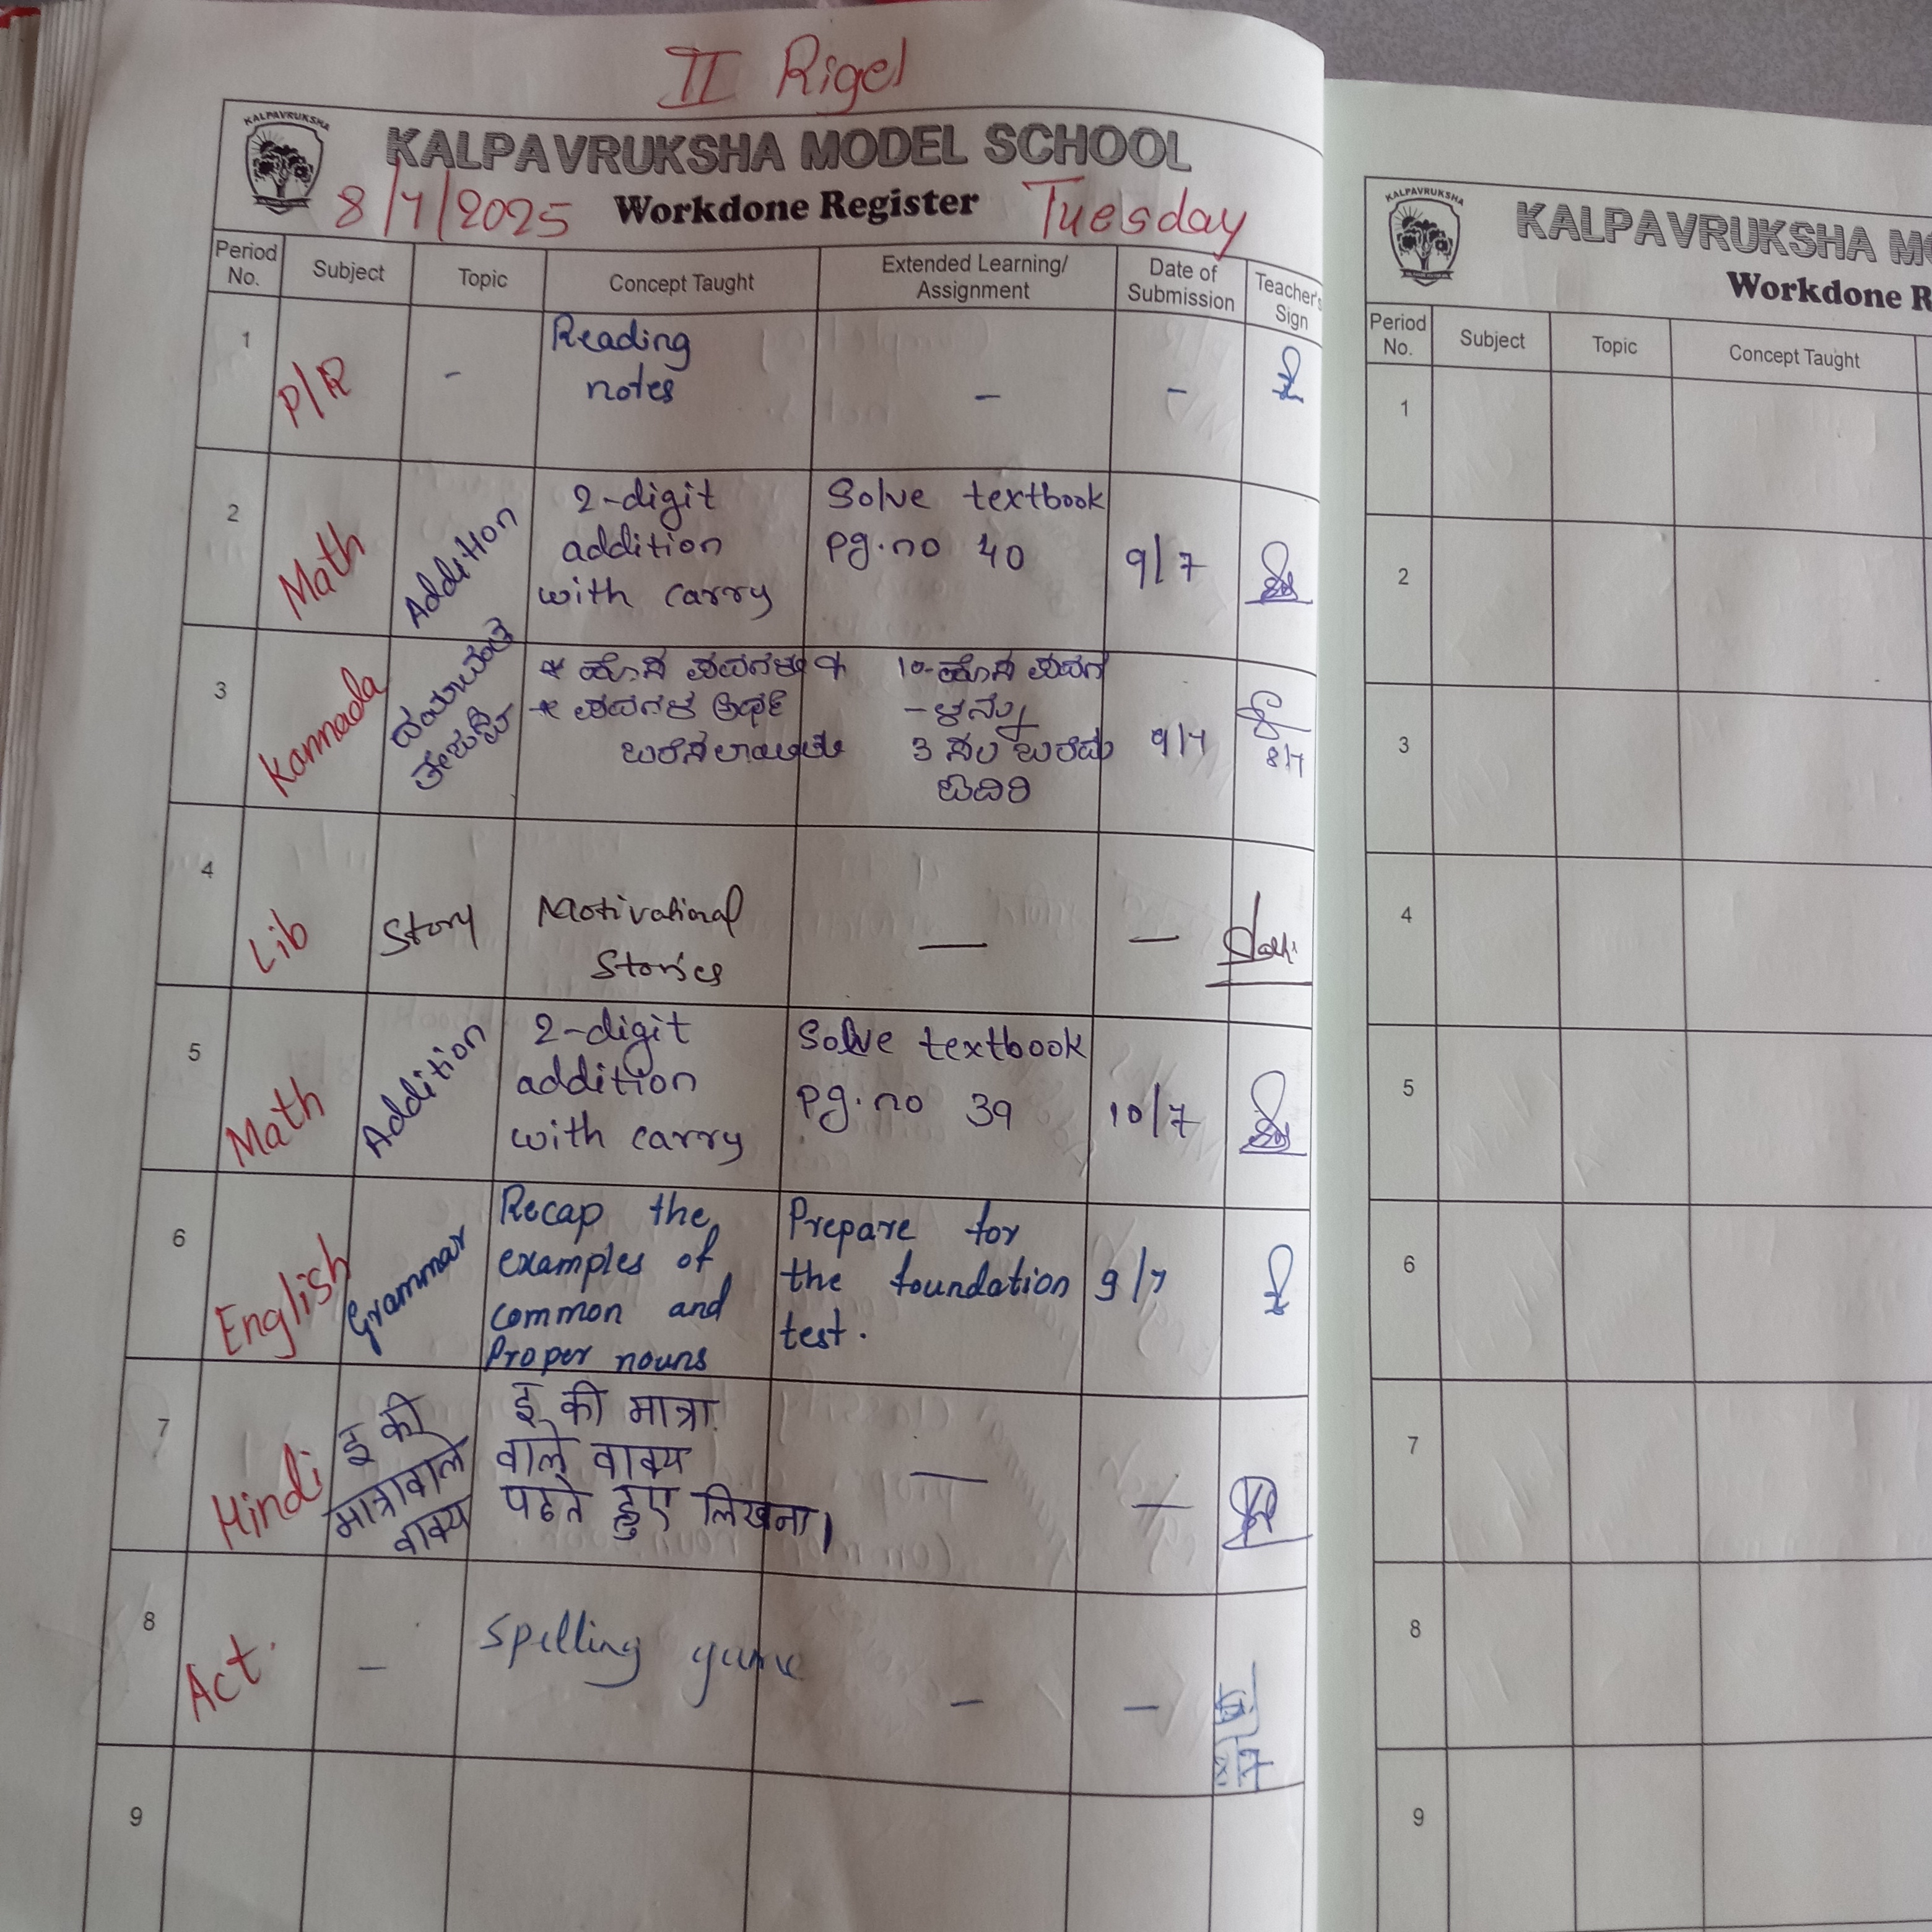 II Rigel
KALPAVRUKSHA
KALPAVRUKSHA MODEL SCHOOL
8/7/2025 Workdone Register Tuesday
Period No. Subject Topic Concept Taught Extended Learning/ Assignment Date of Submission Teacher's Sign
1 P/R - Reading notes - -
2 Math Addition 2-digit addition with carry Solve textbook pg.no 40 9/7
3 Kannada * ಹೊಸ ಪದಗಳು * ಪದಗಳ ಅರ್ಥ 10-ಹೊಸ ಪದಗ -ಳನ್ನು 3 ಸಲ ಬರೆದು ಓದಿರಿ 9/7 8/7
4 Lib Story Motivational Stories — —
5 Math Addition 2-digit addition with carry Solve textbook pg.no 39 10/7
6 English Grammar Recap the examples of common and Proper nouns Prepare for the foundation test. 9/7
7 Hindi इ की मात्रावाले वाक्य इ की मात्रा वाले वाक्य पढते हुए लिखना। — —
8 Act. - Spelling game - -
9
KALPAVRUKSHA
KALPAVRUKSHA MO
Workdone R
Period No. Subject Topic Concept Taught
1
2
3
4
5
6
7
8
9